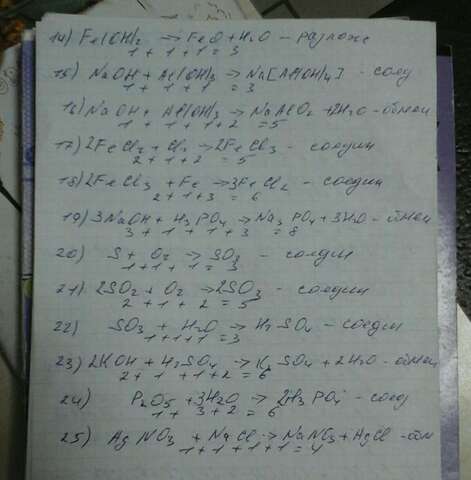 14) Fe(OH)2 → FeO + H2O - разложе
1 + 1 + 1 = 3
15) NaOH + Al(OH)3 → Na[Al(OH)4] - соед
1 + 1 + 1 = 3
16) NaOH + Al(OH)3 → NaAlO2 + 2H2O - обмен
1 + 1 + 1 + 2 = 5
17) 2FeCl2 + Cl2 → 2FeCl3 - соедин
2 + 1 + 2 = 5
18) 2FeCl3 + Fe → 3FeCl2 - соедин
2 + 1 + 3 = 6
19) 3NaOH + H3PO4 → Na3PO4 + 3H2O - обмен
3 + 1 + 1 + 3 = 8
20) S + O2 → SO2 - соедин
1 + 1 + 1 = 3
21) 2SO2 + O2 → 2SO3 - соедин
2 + 1 + 2 = 5
22) SO3 + H2O → H2SO4 - соедин
1 + 1 + 1 = 3
23) 2KOH + H2SO4 → K2SO4 + 2H2O - обмен
2 + 1 + 1 + 2 = 6
24) P2O5 + 3H2O → 2H3PO4 - соед
1 + 3 + 2 = 6
25) AgNO3 + NaCl → NaNO3 + AgCl - обм
1 + 1 + 1 + 1 = 4